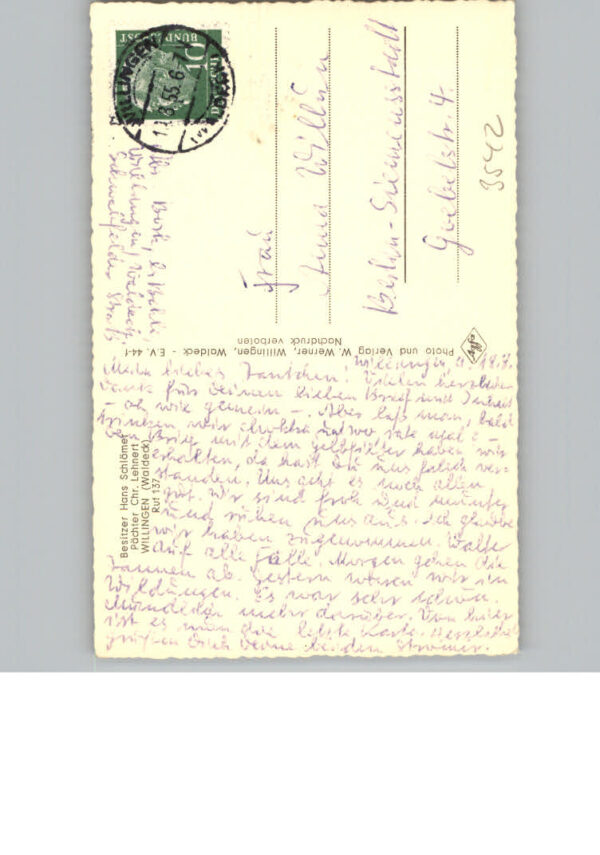 DEUTSCHE
BUNDESPOST
10
WILLINGEN
(WALDECK)
Willingen
Waldeck
Frau
Anna
Berlin-Siemensstadt
Goebelstr. 4.
3542
Photo und Verlag W. Werner, Willingen, Waldeck - E.V. 44-1
Nachdruck verboten
Besitzer Hans Schlömer
Pächter Chr. Lehnert
WILLINGEN (Waldeck)
Ruf 137
Willingen
Mein liebes Tantchen! Vielen herzlichen
Dank für Deinen lieben Brief und
- oh wie gemein -. Aber laß man, bald
trinken wir egal! -
Brief mit dem haben wir
erhalten, da hast Du uns falsch ver-
standen. Uns geht es noch allen
gut. Wir sind froh und munter
und ruhen uns aus. Ich glaube
wir haben zugenommen. Walter
auf alle Fälle. Morgen gehen die
ab. Gestern waren wir in
Wildungen. Es war sehr schön.
Mündlich mehr darüber. Von hier
ist es nun die letzte Karte. Herzlichst
grüßen Dich Deine beiden Stromer.